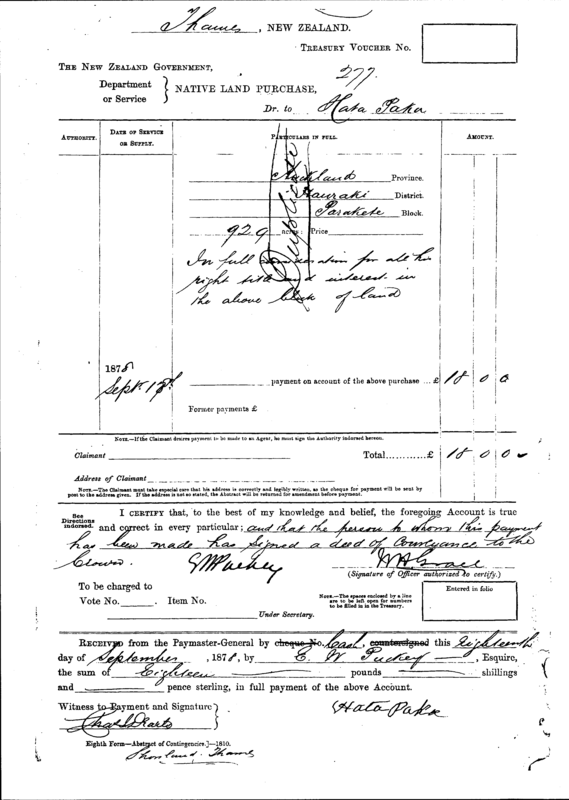 Thames, NEW ZEALAND.
TREASURY VOUCHER No.
277.
THE NEW ZEALAND GOVERNMENT,
Department or Service } NATIVE LAND PURCHASE,
Dr. to Hata Paka
AUTHORITY. DATE OF SERVICE OR SUPPLY. PARTICULARS IN FULL. AMOUNT.
Duplicate
Auckland Province.
Hauraki District.
Parakete Block.
929 acres: Price
In full consideration for all his
right title and interest in
the above block of land
1878
Sept. 18th payment on account of the above purchase ... £ 18 0 0
Former payments £
NOTE.—If the Claimant desires payment to be made to an Agent, he must sign the Authority indorsed hereon.
Claimant Total............£ 18 0 0
Address of Claimant
NOTE.—The Claimant must take especial care that his address is correctly and legibly written, as the cheque for payment will be sent by
post to the address given. If the address is not so stated, the Abstract will be returned for amendment before payment.
See Directions indorsed.
I CERTIFY that, to the best of my knowledge and belief, the foregoing Account is true
and correct in every particular; and that the person to whom this payment
has been made has signed a deed of Conveyance to the
Crown. E W Puckey
(Signature of Officer authorized to certify.)
To be charged to
Vote No. . Item No.
NOTE.—The spaces enclosed by a line are to be left open for numbers to be filled in in the Treasury.
Entered in folio
Under Secretary.
RECEIVED from the Paymaster-General by cheque No. Cash, countersigned this Eighteenth
day of September, 1878, by E. W Puckey, Esquire,
the sum of Eighteen pounds shillings
and pence sterling, in full payment of the above Account.
Witness to Payment and Signature }
Hata Paka
Eighth Form—Abstract of Contingencies.]—1810.
Shortland, Thames